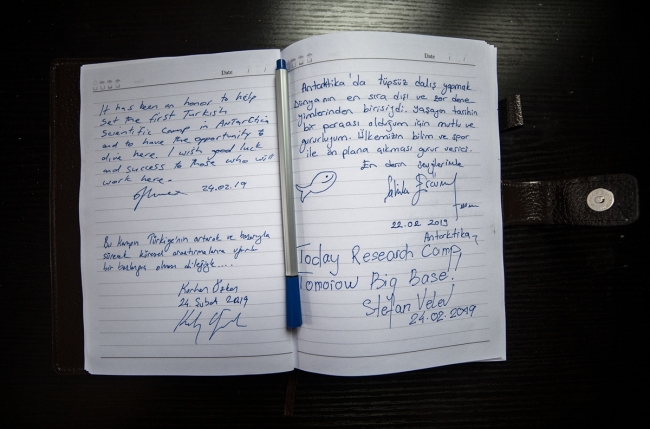 Date
It has been an honor to help
Set the first Turkish
Scientific Camp in Antarctica
and to have the opportunity to
dive here. I wish good luck
and success to those who will
work here.
24.02.19
Bu kampın Türkiye'nin artarak ve başarıyla
sürecek küresel araştırmalarına
bir başlangıç olması dileğiyle....
Korhan Özkan
24 Şubat 2019
Date
Antarktika'da tüpsüz dalış yapmak
dünyanın en sıra dışı ve zor dene
yimlerinden birisiydi. Yaşayan tarihin
bir parçası olduğum için mutlu ve
gururluyum. Ülkemizin bilim ve spor
ile ön plana çıkması gurur verici.
En derin saygılarımla
Şahika Ercümen
22.02.2019
Antarktika
Today Research Camp,
Tomorow Big Base!
Stefan Velev
24.02.2019